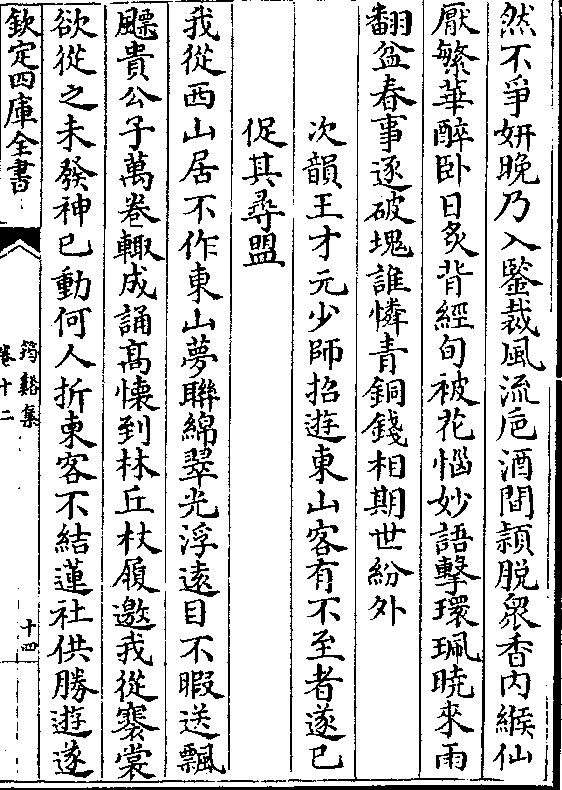 然不爭妍晚乃入鑒裁風流巵酒間頴脫衆香内緱仙
厭繁華醉卧日炙背經旬被花惱妙語擊環珮曉來雨
翻盆春事逐破塊誰憐青銅錢相期世紛外
次韻王才元少師招遊東山客有不至者遂已
促其尋盟
我從西山居不作東山夢聯綿翠光浮遠目不暇送飄
飄貴公子萬卷輙成誦髙懷到林丘杖屨邀我從褰裳
欲從之未發神已動何人折柬客不結蓮社供勝遊遂
欽定四庫全書
筠谿集
卷十二
十四